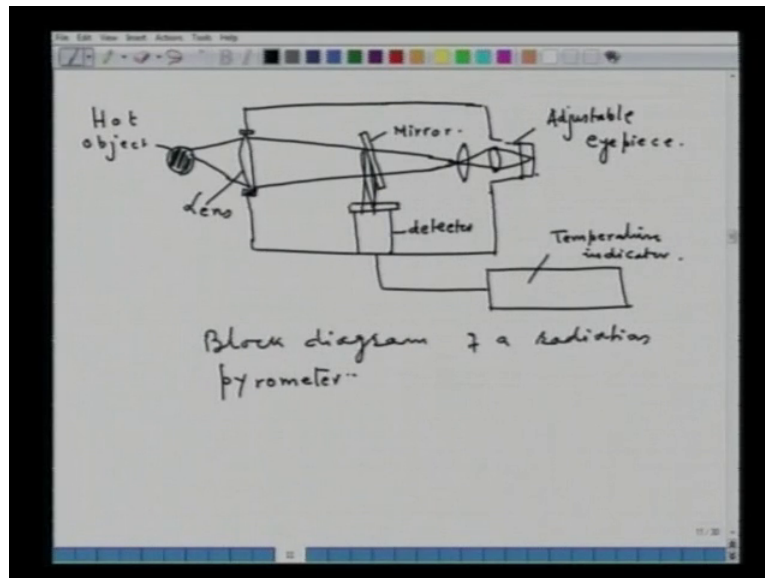 File Edit View Insert Actions Tools Help
Hot
object
Mirror.
Adjustable
eyepiece.
Lens
detector
Temperature
indicator.
Block diagram of a radiation
pyrometer
11/30